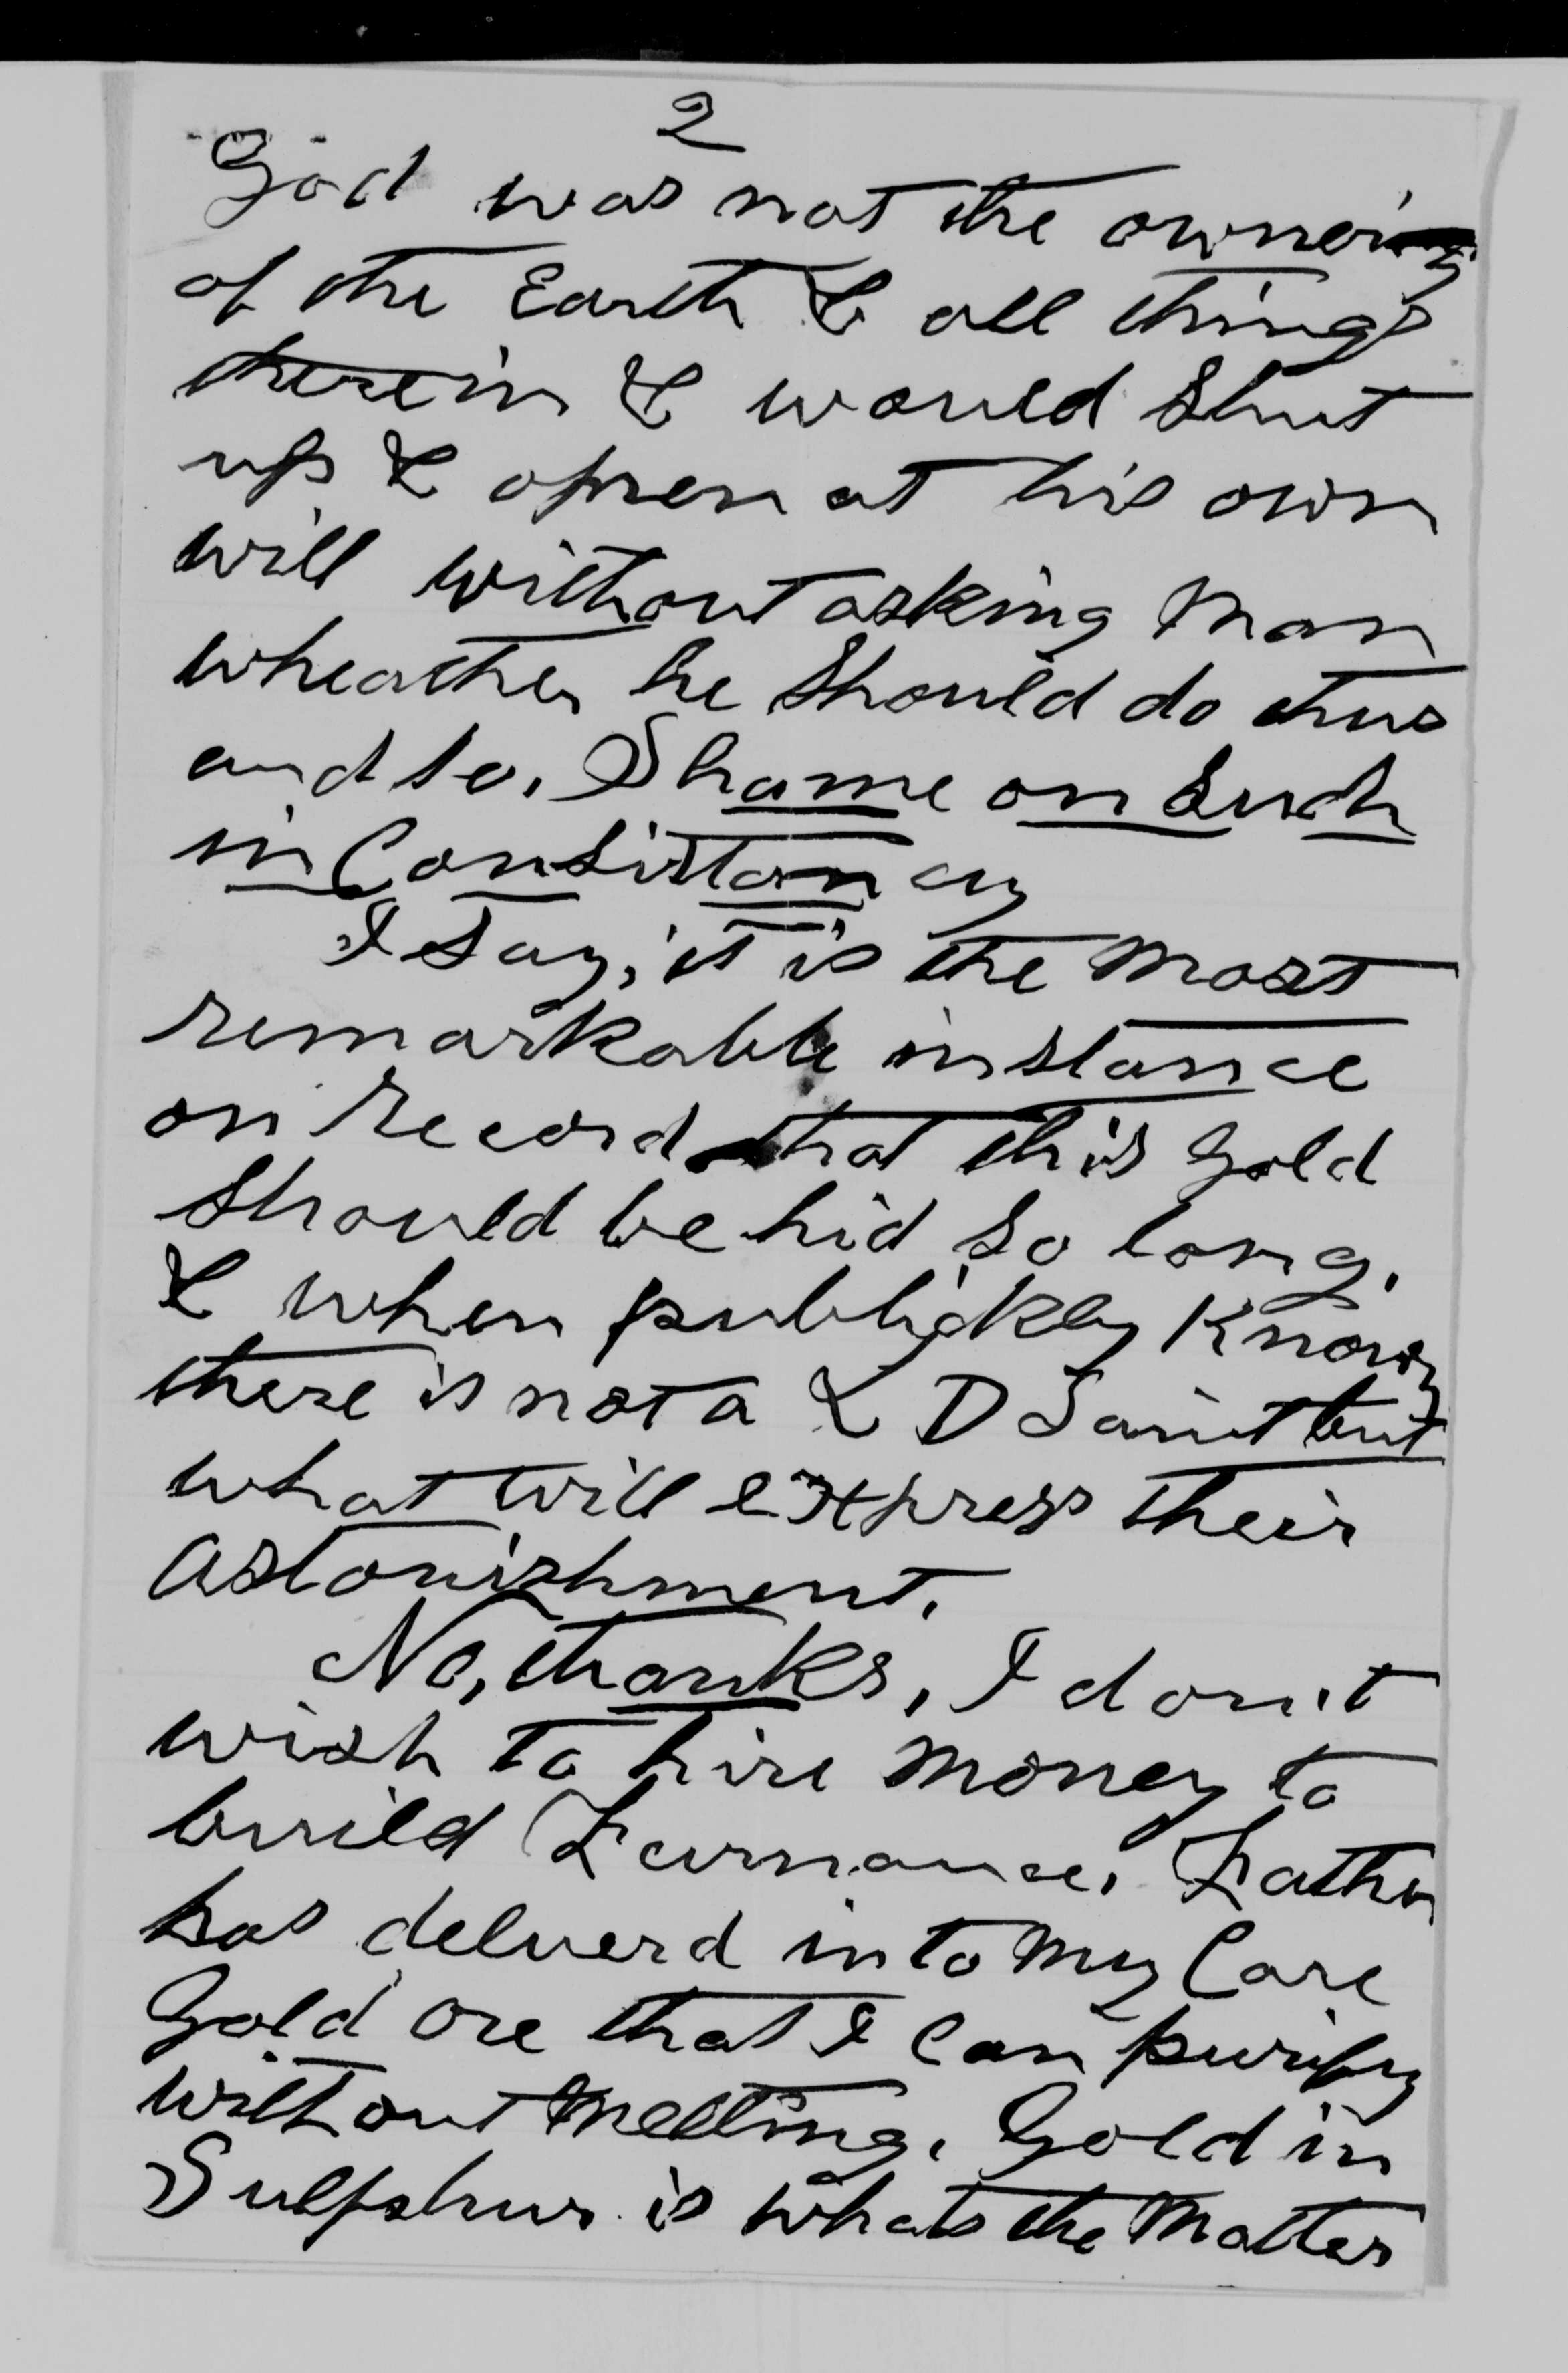 2
God was not the owner
of the Earth & all things
therein & would Shut
up & open at his own
will without asking Man
wheather he Should do thus
and so, Shame on Such
in Consistancy
I Say, it is the Most
remarkable instance
on record that this gold
should be hid so long,
& when publickly Known
there is not a L D Saint but
what will express their
astonishment.
No, thanks, I don't
wish to hire Money to
build Furnance, Father
has deluerd into My Care
Gold ore that I Can purify
without Melting, Gold in
Sulphur is whats the Matter